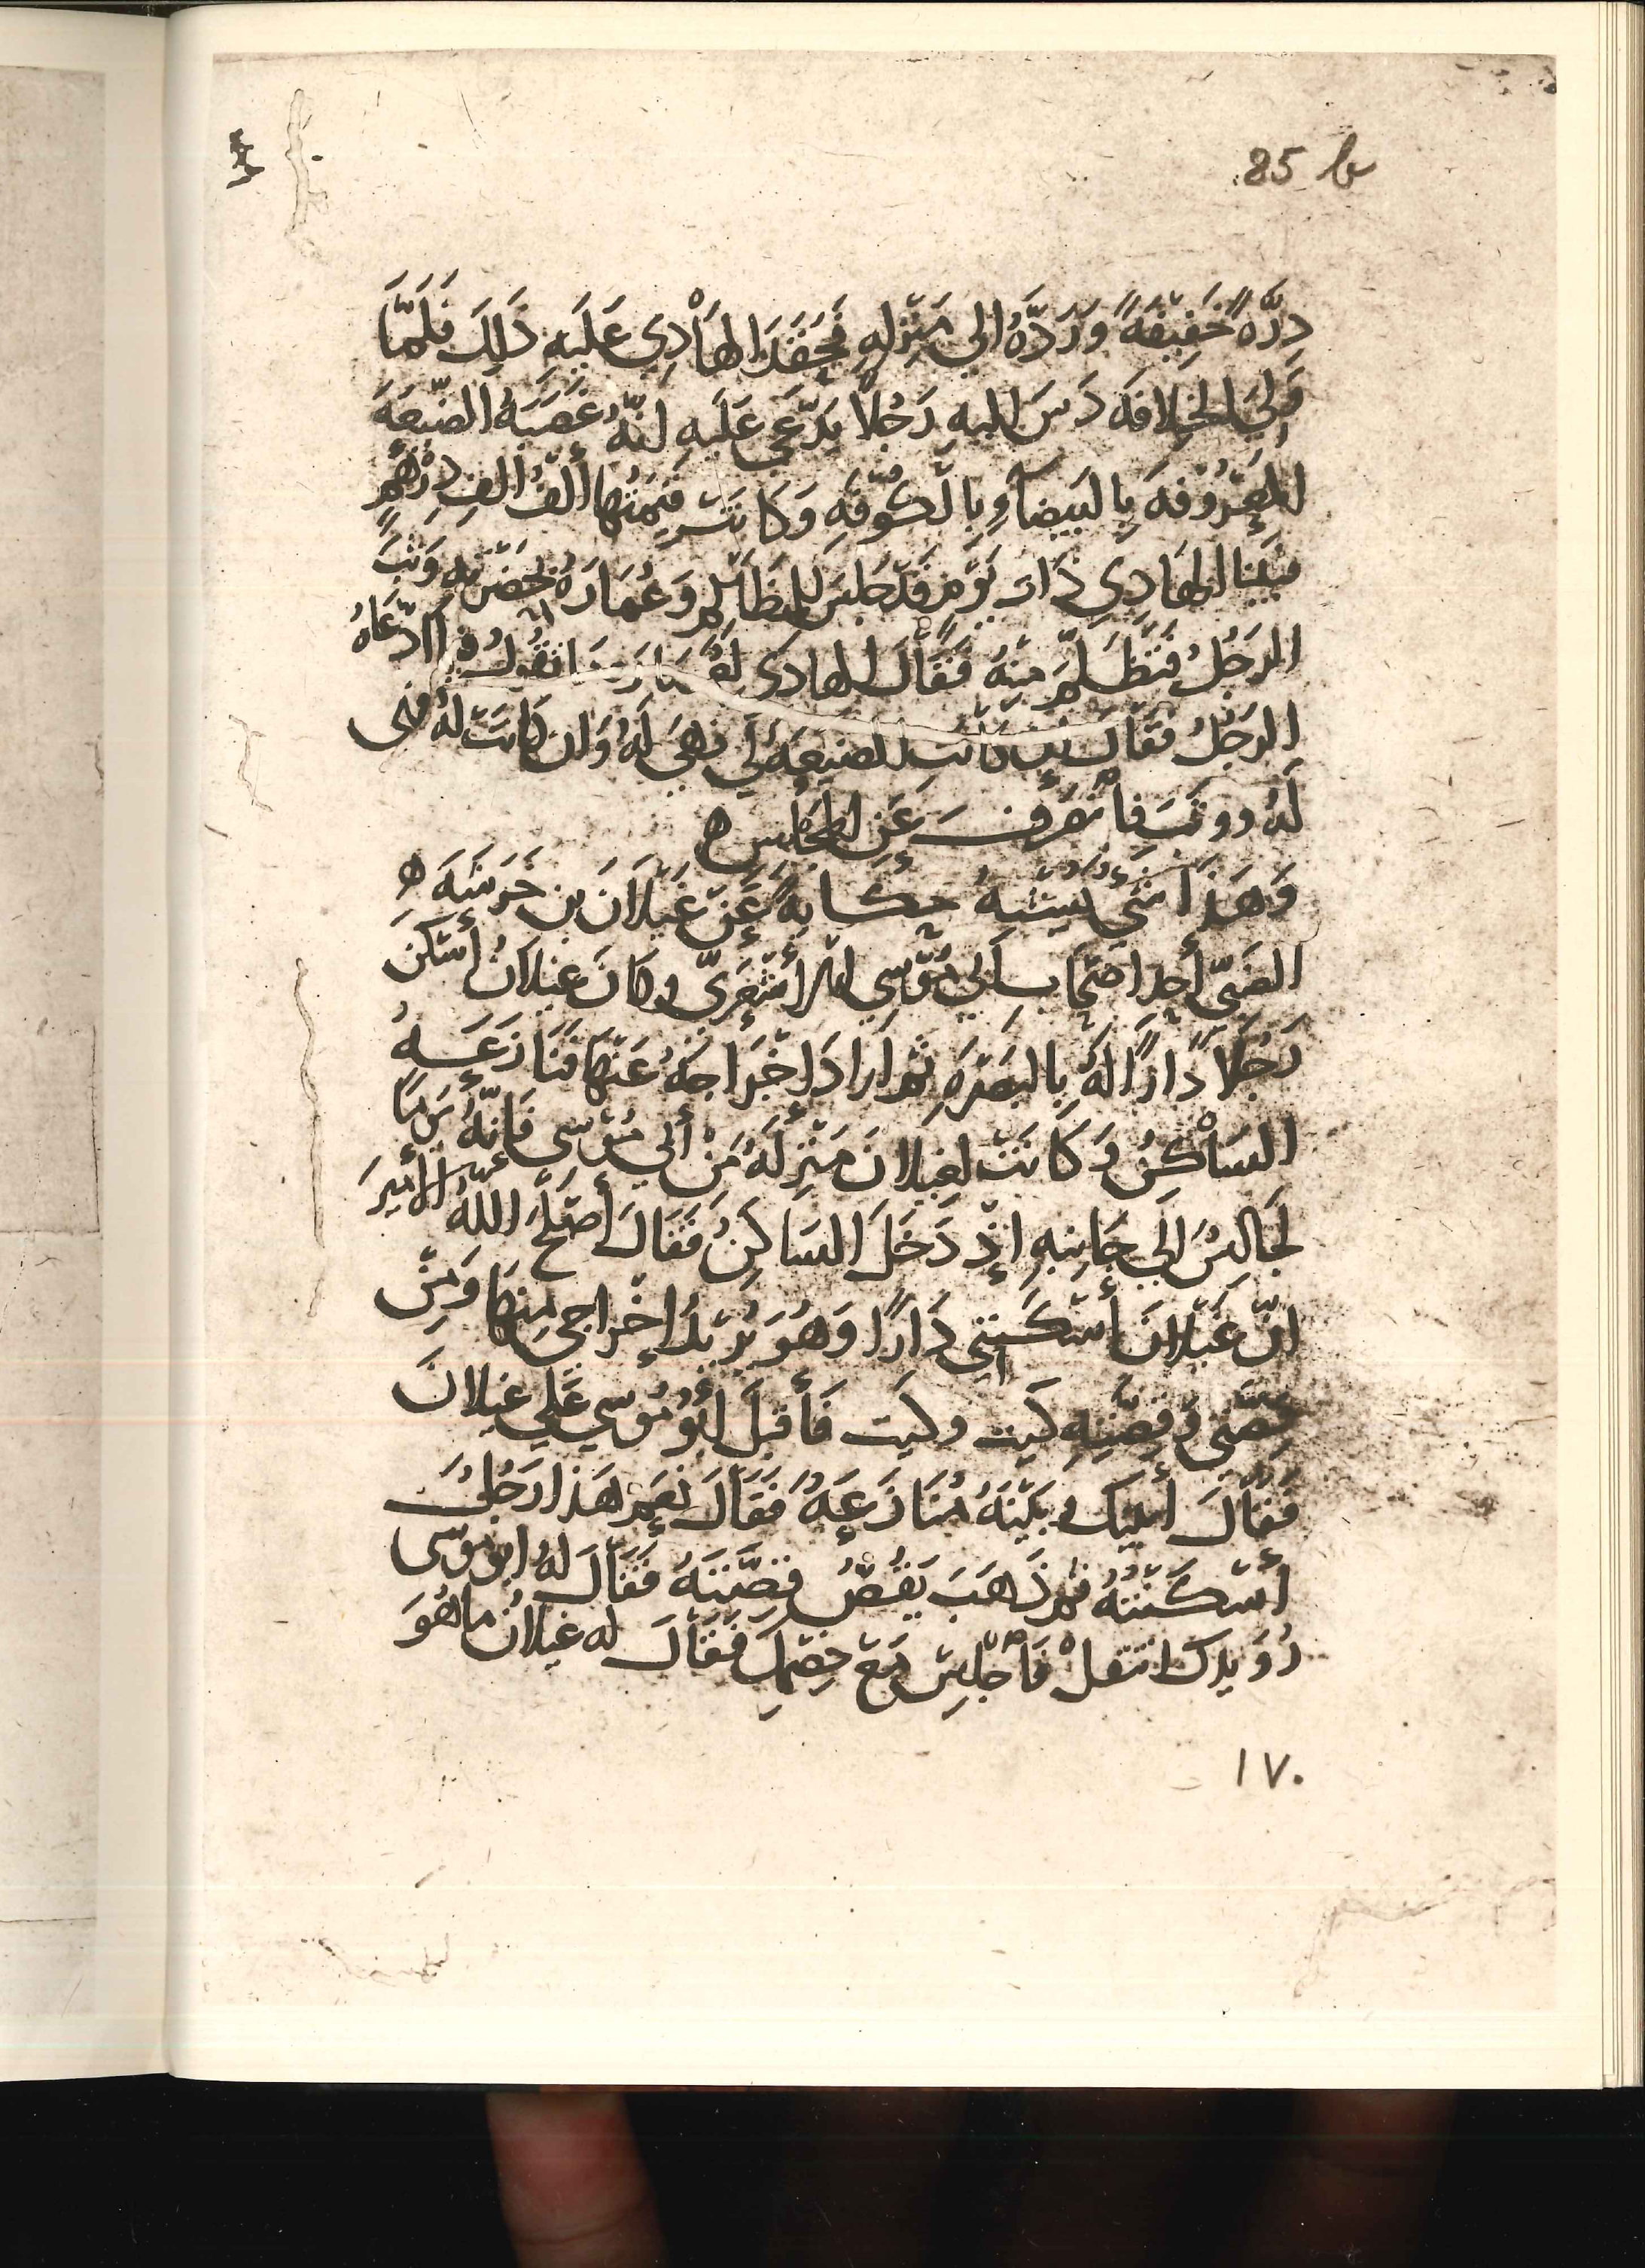 85 b
دِرَّةً خَفِيْفَةً وَرَدَّهُ الي مَنْزِلِهِ فَحَقَدَ الهَاْدِي عَلَيهِ ذَلِكَ فَلَمَّا
وَلِيَ الخِلافَه دَسَ اليهِ رَجُلاً يَدَّعِي عَلَيهِ انَّهُ غَصَبَهُ الضَيْعَهَ
المَعْرُوْفَهَ بِالبَيضَآءِ بِالْكُوْفَهِ وَكَانَتْ قِيْمَتُهَا أَلْفُ الفِ دِرْهَمٍ
فبَيْنا الهَادِي ذَاتَ يَوْمٍ قَدْ جَلَسَ لِلمَظَالِمِ وَعُمَارَهُ بِحَضْرَتِهِ وَثَبَ
الرَجُلُ فَتَظَلَّمَ مِنْهُ فَقَالَ الهادي لِعُمَارَه مَا تَقُولُ فيما ادَّعَاهُ
الرَجُلُ فَقَالَ إن كَانَتِ الضَيْعَهُ لي فَهِيَ لَهُ وَان كَانَتْ لَهُ فهي
لَهُ ووثَبَ فاْنصَرفَ عَنِ المَجْلِسِ ه
وَهَذَا شَيْءٌ يُشْبِهُ حِكَايَةً عَنْ غَيْلاَنَ بن خَرَشَهَ ه
الضَبّي أَحد اصْحَابِ أَبي مُوْسي الأَشْعَرِيّ وكَانَ غيلانُ أَسْكَنَ
رَجُلاً دَارًا لَهُ بِالبَصْرَهِ ثُمَ أَرَادَ اخْرَاجَهُ عَنْهَا فَنَازَعَهُ
السَاْكِنُ وَكَانَتْ لغَيلانَ مَنْزِلَهُ مَنْ أَبي مُوْسي فَإِنَّهُ يَومًا
لَجَالِسٌ اِلَي جَانِبِهِ إِذْ دَخَلَ السَاكِنُ فَقَالَ أَصْلَحَ اللهُ الأَمِيرَ
انّ غَيْلانَ أَسْكَنَنِي دَارًا وَهُوَ يُرْيدُ إِخْرَاجِي مِنهَا وَمِنْ
قِصَّتِي وَقِصَّتِهِ كَيتَ وكَيتَ فَأَقبَلَ أَبُوْ مُوْسي عَلَي غيلانَ
فَقَالَ أَبَيْنَكَ وبَيْنَهُ مُنَازَعِهُ فَقَالَ نَعَمْ هَذا رَجُلٌ
أَسْكَنْتُهُ ثم ذَهَبَ يَقُصُّ قِصَّتَهُ فَقَالَ لهُ ابو موْسى
رُوَيدَك انتقلْ فَاْجْلِسْ مَعَ خِصْمِكَ فَقَالَ له غيلانُ ما هُوَ
١٧٠